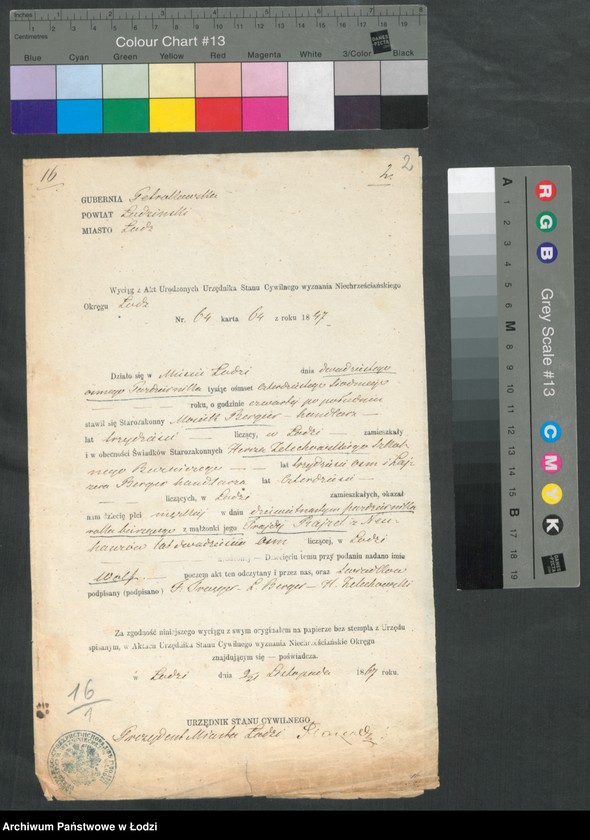 Inches
Centimetres
Colour Chart #13
Blue Cyan Green Yellow Red Magenta White 3/Color Black
16
2
GUBERNIA Petrokowska
POWIAT Łodziński
MIASTO Łódź
Wyciąg z Akt Urodzonych Urzędnika Stanu Cywilnego wyznania Niechrześciańskiego
Okręgu Łódź
Nr. 64 karta 64 z roku 1847
Działo się w Mieście Łodzi dnia dwudziestego
ósmego Października tysiąc ośmset czterdziestego siódmego
roku, o godzinie czwartej po południu
stawił się Starozakonny Berger handlarz
lat trzydzieści liczący, w Łodzi zamieszkały
i w obecności Świadków Starozakonnych Herza Zelechowskiego Szkol-
nego Bożniczego lat trzydzieści ośm i Laj-
zera Berger handlarza lat czterdzieści
liczących, w Łodzi zamieszkałych, okazał
nam dziecię płci męzkiej w dniu dziewiętnastym października
roku bieżącego z małżonki jego Rajzel z Neu-
hauzów lat dwadzieścia ośm liczącej, w Łodzi
Dziecięciu temu przy podaniu nadano imie
Wolf poczem akt ten odczytany i przez nas, oraz
podpisany (podpisano) L. Berger H. Zelechowski
Za zgodność niniejszego wyciągu z swym oryginałem na papierze bez stempla z Urzędu
spisanym, w Aktach Urzędnika Stanu Cywilnego wyznania Niechrześciańskie Okręgu
znajdującym się — poświadcza.
w Łodzi dnia Listopada 1867 roku.
16
1
URZĘDNIK STANU CYWILNEGO
Prezydent Miasta Łodzi
A 1 2 3 4 5 6 M 8 9 10 11 12 13 14 15 B 17 18 19
R G B
Grey Scale #13
C M Y K
Archiwum Państwowe w Łodzi